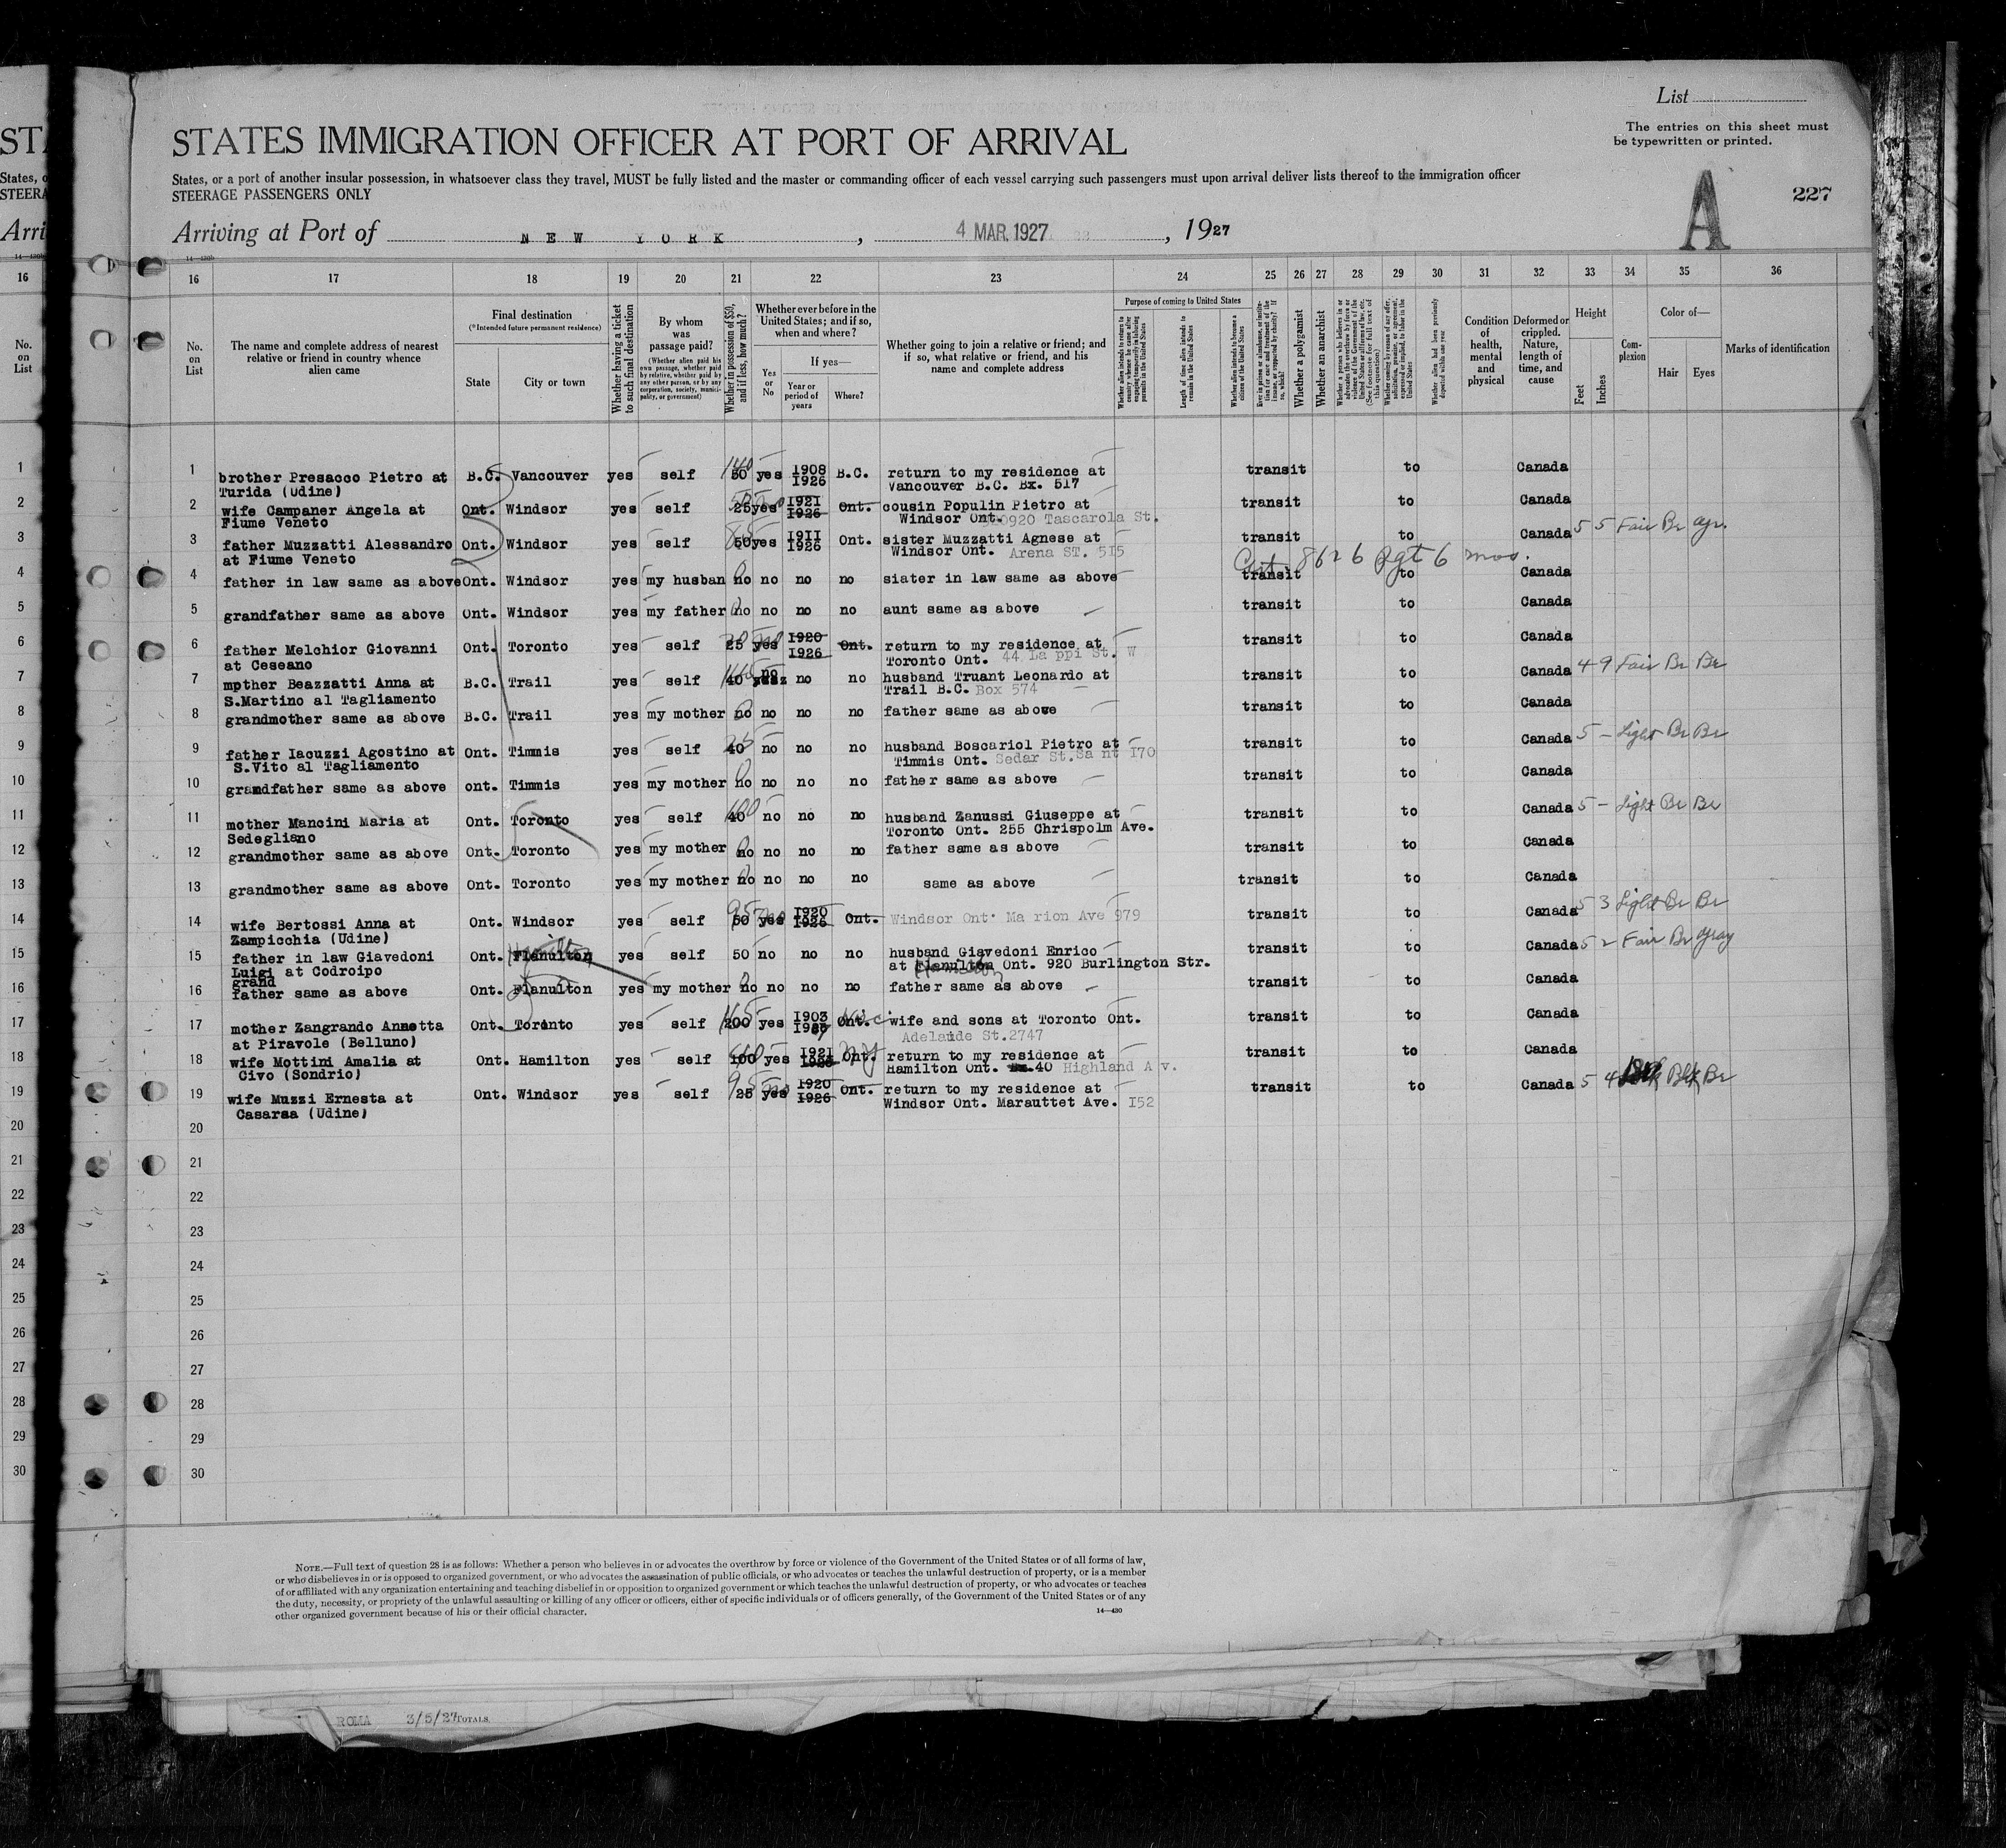 List
The entries on this sheet must
be typewritten or printed.
STATES IMMIGRATION OFFICER AT PORT OF ARRIVAL
States, or a port of another insular possession, in whatsoever class they travel, MUST be fully listed and the master or commanding officer of each vessel carrying such passengers must upon arrival deliver lists thereof to the immigration officer
STEERAGE PASSENGERS ONLY
A 227
Arriving at Port of NEW YORK, 4 MAR. 1927, 1927
16 17 18 19 20 21 22 23 24 25 26 27 28 29 30 31 32 33 34 35 36
No. on List
The name and complete address of nearest relative or friend in country whence alien came
Final destination
(*Intended future permanent residence)
State
City or town
Whether having a ticket to such final destination
By whom was passage paid?
(Whether alien paid his own passage, whether paid by relative, whether paid by any other person, or by any corporation, society, municipality, or government)
Whether in possession of $50, and if less, how much?
Whether ever before in the United States; and if so, when and where?
Yes or No
If yes—
Year or period of years
Where?
Whether going to join a relative or friend; and if so, what relative or friend, and his name and complete address
Purpose of coming to United States
Length of time alien intends to remain in the United States
Whether alien intends to become a citizen of the United States
Whether a polygamist
Whether an anarchist
Condition of health, mental and physical
Deformed or crippled. Nature, length of time, and cause
Height
Feet
Inches
Complexion
Color of—
Hair
Eyes
Marks of identification
1 brother Presacco Pietro at B.C. Vancouver yes self 50 yes 1908 B.C. return to my residence at transit to Canada
Turida (Udine) 1926 Vancouver B.C. Bx. 517
2 wife Campaner Angela at Ont. Windsor yes self 25 yes 1921 Ont. cousin Populin Pietro at transit to Canada
Fiume Veneto 1926 Windsor Ont. 920 Tascarola St.
3 father Muzzatti Alessandro Ont. Windsor yes self 50 yes 1911 Ont. sister Muzzatti Agnese at transit to Canada 5 5 Fair Br
at Fiume Veneto 1926 Windsor Ont. Arena ST. 515
4 father in law same as above Ont. Windsor yes my husban no no no no siater in law same as above transit to Canada
5 grandfather same as above Ont. Windsor yes my father no no no no aunt same as above transit to Canada
6 father Melchior Giovanni Ont. Toronto yes self 25 yes 1920 Ont. return to my residence at transit to Canada
at Ceseano 1926 Toronto Ont. 44 La ppi St. W
7 mpther Beazzatti Anna at B.C. Trail yes self 40 no no no husband Truant Leonardo at transit to Canada 4 9 Fair Br Br
S.Martino al Tagliamento Trail B.C. Box 574
8 grandmother same as above B.C. Trail yes my mother no no no no father same as above transit to Canada
9 father Iacuzzi Agostino at Ont. Timmis yes self 40 no no no husband Boscariol Pietro at transit to Canada 5 - Light Br Br
S.Vito al Tagliamento Timmis Ont. Sedar St.Sa nt 170
10 grandfather same as above ont. Timmis yes my mother no no no no father same as above transit to Canada
11 mother Mancini Maria at Ont. Toronto yes self 40 no no no husband Zanussi Giuseppe at transit to Canada 5 - Light Br Br
Sedegliano Toronto Ont. 255 Chrispolm Ave.
12 grandmother same as above Ont. Toronto yes my mother no no no no father same as above transit to Canada
13 grandmother same as above Ont. Toronto yes my mother no no no no same as above transit to Canada
14 wife Bertossi Anna at Ont. Windsor yes self 50 yes 1920 Ont. Windsor Ont. Ma rion Ave 979 transit to Canada 5 3 Light Br Br
Zampicchia (Udine) 1926
15 father in law Giavedoni Ont. Flanulton Hamilton yes self 50 no no no husband Giavedoni Enrico transit to Canada 5 2 Fair Br gray
Luigi at Codroipo at Flanulton Hamilton Ont. 920 Burlington Str.
16 grand father same as above Ont. Flanulton yes my mother no no no no father same as above transit to Canada
17 mother Zangrando Annetta Ont. Toronto yes self 200 yes 1903 Ont. wife and sons at Toronto Ont. transit to Canada
at Piravole (Belluno) Adelaide St.2747
18 wife Mottini Amalia at Ont. Hamilton yes self 100 yes 1921 Ont. NY return to my residence at transit to Canada
Civo (Sondrio) Hamilton Ont. 40 Highland A v.
19 wife Muzzi Ernesta at Ont. Windsor yes self 25 yes 1920 Ont. return to my residence at transit to Canada 5 4 Blk Br
Casarsa (Udine) 1926 Windsor Ont. Marauttet Ave. 152
20
21
22
23
24
25
26
27
28
29
30
NOTE.—Full text of question 28 is as follows: Whether a person who believes in or advocates the overthrow by force or violence of the Government of the United States or of all forms of law,
or who disbelieves in or is opposed to organized government, or who advocates the assassination of public officials, or who advocates or teaches the unlawful destruction of property, or is a member
of or affiliated with any organization entertaining and teaching disbelief in or opposition to organized government or which teaches the unlawful destruction of property, or who advocates or teaches
the duty, necessity, or propriety of the unlawful assaulting or killing of any officer or officers, either of specific individuals or of officers generally, of the Government of the United States or of any
other organized government because of his or their official character.
14—430
ROMA 3/5/27 TOTALS.